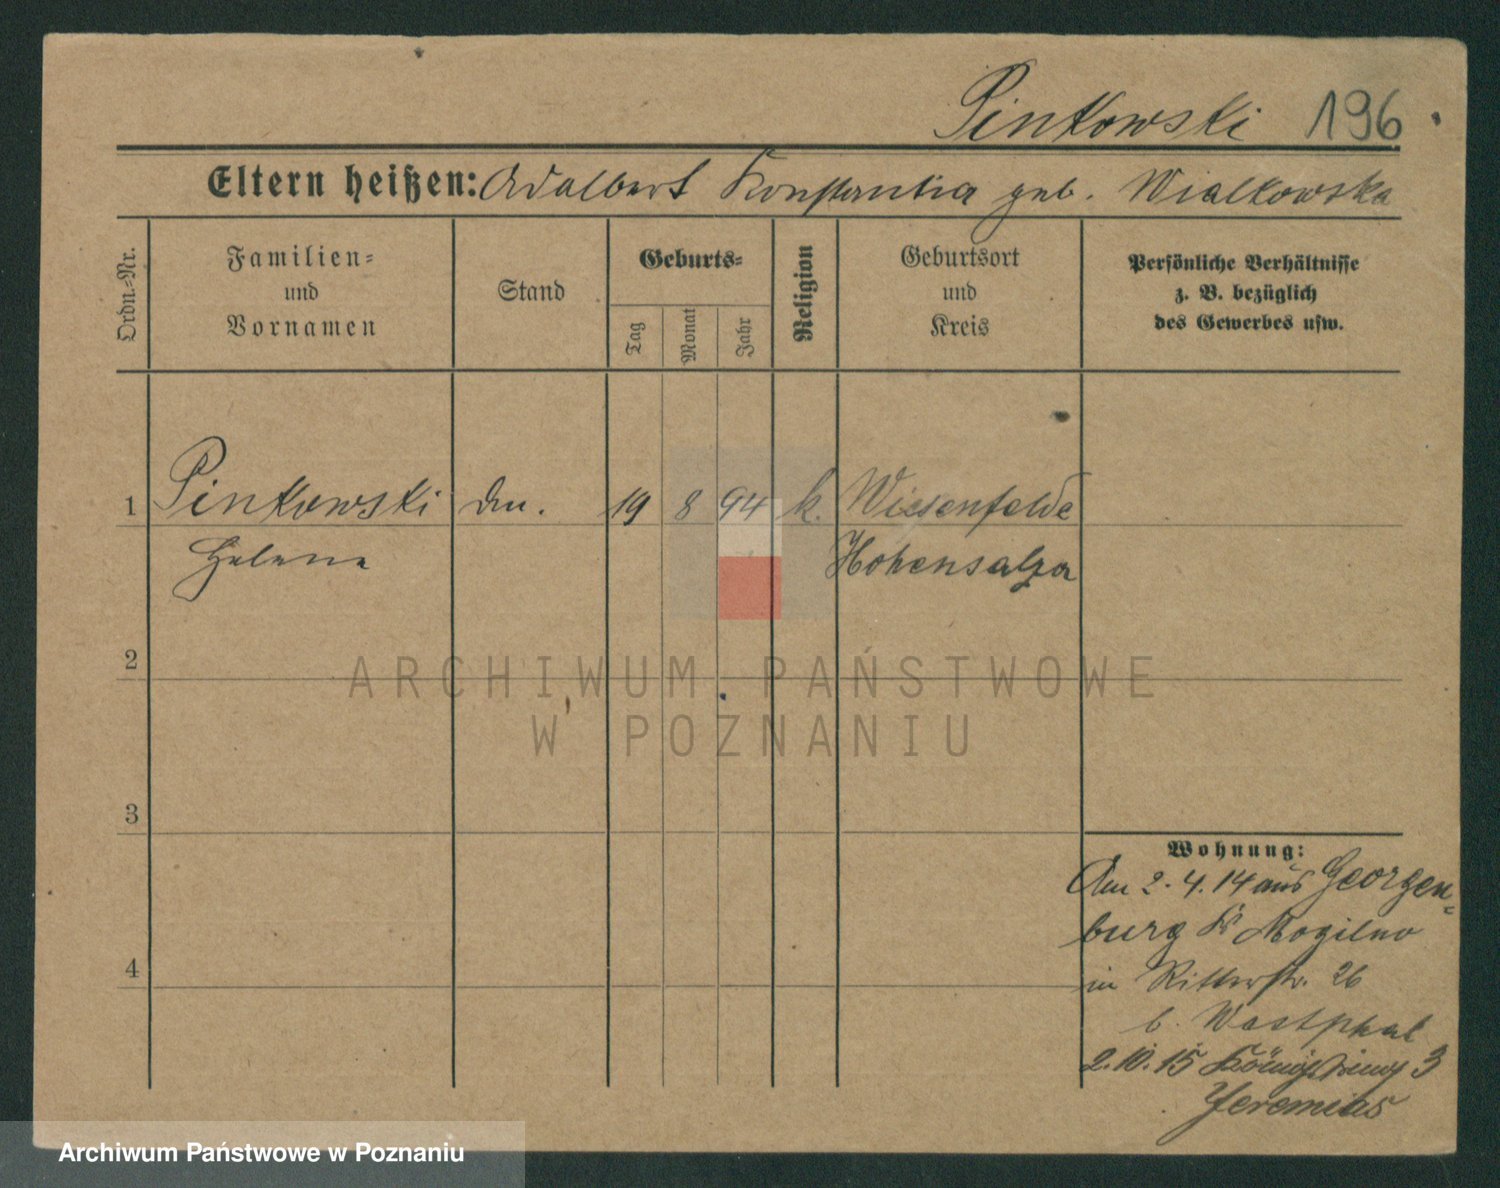 Pinkowski 196
Eltern heißen: Adalbert Konstantia geb. Wialkowska
Ordn.-Nr.
Familien-
und
Vornamen
Stand
Geburts-
Tag
Monat
Jahr
Religion
Geburtsort
und
Kreis
Persönliche Verhältnisse
z. B. bezüglich
des Gewerbes usw.
1 Pinkowski 19 8 94 k. Wiesenfelde
Helene Hohensalza
2
3
4
Wohnung:
Am 2.4.14 aus Georgen-
burg Kr Mogilno
in Ritterstr. 26
b. Westphal
2.10.15 Königsring 3
Jeremias
ARCHIWUM PAŃSTWOWE
W POZNANIU
Archiwum Państwowe w Poznaniu